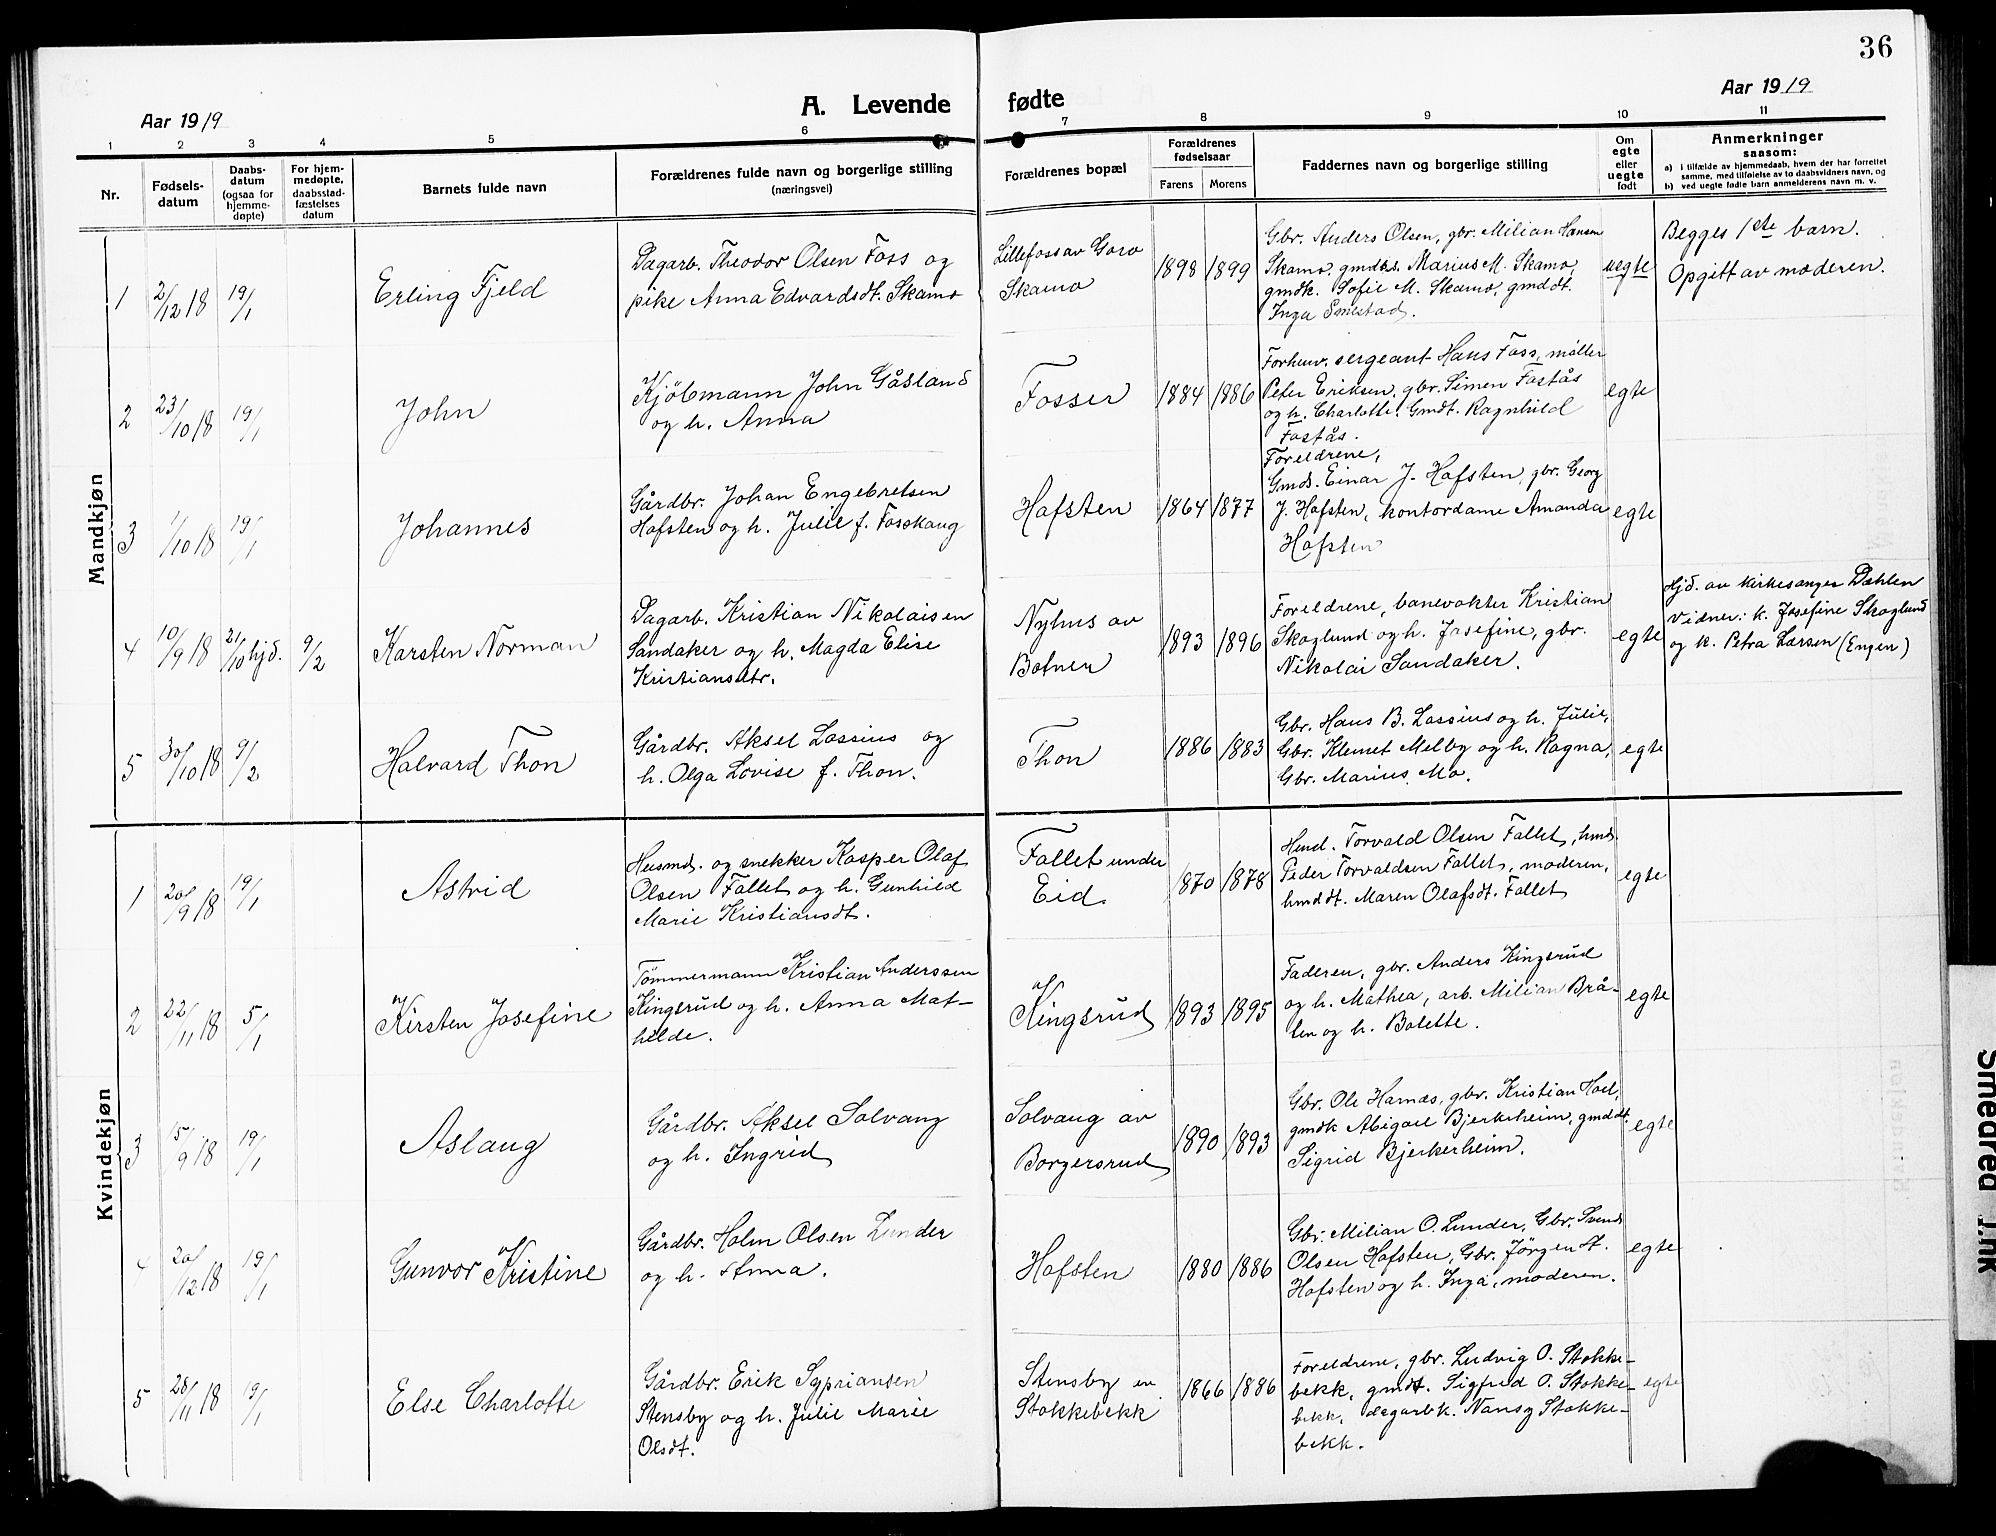 36
A. Levende fødte
Aar 1919
Aar 1919
1 2 3 4 5 6 7 8 9 10 11
Nr.
Fødsels-
datum
Daabs-
datum
(ogsaa for
hjemme-
døpte)
For hjem-
medøpte,
daabsstad-
fæstelses
datum
Barnets fulde navn
Forældrenes fulde navn og borgerlige stilling
(næringsvei)
Forældrenes bopæl
Forældrenes
fødselsaar
Farens Morens
Faddernes navn og borgerlige stilling
Om
egte
eller
uegte
født
Anmerkninger
saasom:
a) i tilfælde av hjemmedaab, hvem der har forrettet
samme, med tilføielse av to daabsvidners navn, og
b) ved uegte fødte barn anmelderens navn m. v.
Mandkjøn
1
2/12 18
19/1
Erling Fjeld
Dagarb. Theodor Olsen Foss og
pike Anna Edvardsdt. Skamo
Lillefoss av Goro
Skamo
1898 1899
Gbr. Anders Olsen, gbr. Milian Hansen
Skamo, gmdks. Marius M. Skamo,
gmdk. Sofie M. Skamo, gmddt.
Inga Smestad.
uegte
Begges 1ste barn.
Opgitt av moderen.
2
23/10 18
19/1
John
Kjöbmann John Gåsland
og h. Anna
Fosser
1884 1886
Forhenv. sergeant Hans Foss, møller
Peter Eriksen, gbr. Simen Fostås
og h. Charlotte, Gmdt. Ragnhild
Fostås.
egte
3
1/10 18
19/1
Johannes
Gårdbr. Johan Engebretsen
Hofsten og h. Julie f. Fosskaug
Hofsten
1864 1877
Foreldrene,
Gmds. Einar J. Hofsten, gbr. Georg
J. Hofsten, kontordame Amanda
Hofsten
egte
4
10/9 18
21/10 hjd.
9/2
Karsten Norman
Dagarb. Kristian Nikolaisen
Sandaker og h. Magda Elise
Kristiansdtr.
Nyhus av
Botner
1893 1896
Foreldrene, banevokter Kristian
Skoglund og h. Josefine, gbr.
Nikolai Sandaker.
egte
Hjd. av kirkesanger Dæhlen
Vidner: k. Josefine Skoglund
og k. Petra Larsen (Engen)
5
30/10 18
9/2
Halvard Thon
Gårdbr. Aksel Lossius og
h. Olga Lovise f. Thon.
Thon
1886 1883
Gbr. Hans B. Lossius og h. Julie,
Gbr. Klemet Melby og h. Ragna,
Gbr. Marius Mo.
egte
Kvindekjøn
1
20/9 18
19/1
Astrid
Husmd. og snekker Kasper Olaf
Olsen Fallet og h. Gunhild
Marie Kristiansdt.
Fallet under
Eid
1870 1878
Husd. Torvald Olsen Fallet, hmds.
Peder Torvaldsen Fallet, moderen,
hmddt. Maren Olafsdt. Fallet
egte
2
22/11 18
5/1
Kirsten Josefine
Tömmermann Kristian Anderssen
Kingsrud og h. Anna Mat-
hilde.
Kingsrud
1893 1895
Faderen, gbr. Anders Kingsrud
og h. Mathea, arb. Milian Brå-
ten og h. Bolette.
egte
3
5/9 18
19/1
Aslaug
Gårdbr. Aksel Solvang
og h. Ingrid
Solvang av
Borgersrud
1890 1893
Gbr. Ole Harnæs, gbr. Kristian Hoel,
gmdk Abigael Bjerkerheim, gmddt.
Sigrid Bjerkerheim.
egte
4
20/12 18
19/1
Gunvor Kristine
Gårdbr. Holm Olsen Lunder
og h. Anna.
Hofsten
1880 1886
Gbr. Milian O. Lunder, Gbr. Svend
Olsen Hofsten, Gbr. Jörgen A.
Hofsten og h. Inga, moderen.
egte
5
28/11 18
19/1
Else Charlotte
Gårdbr. Erik Sypriansen
Stensby og h. Julie Marie
Olsdt.
Stensby av
Stokkebekk
1866 1886
Foreldrene, gbr. Ludvig O. Stokke-
bekk, gmdt. Sigfrid O. Stokke-
bekk, dagarbk. Nansy Stokke-
bekk.
egte